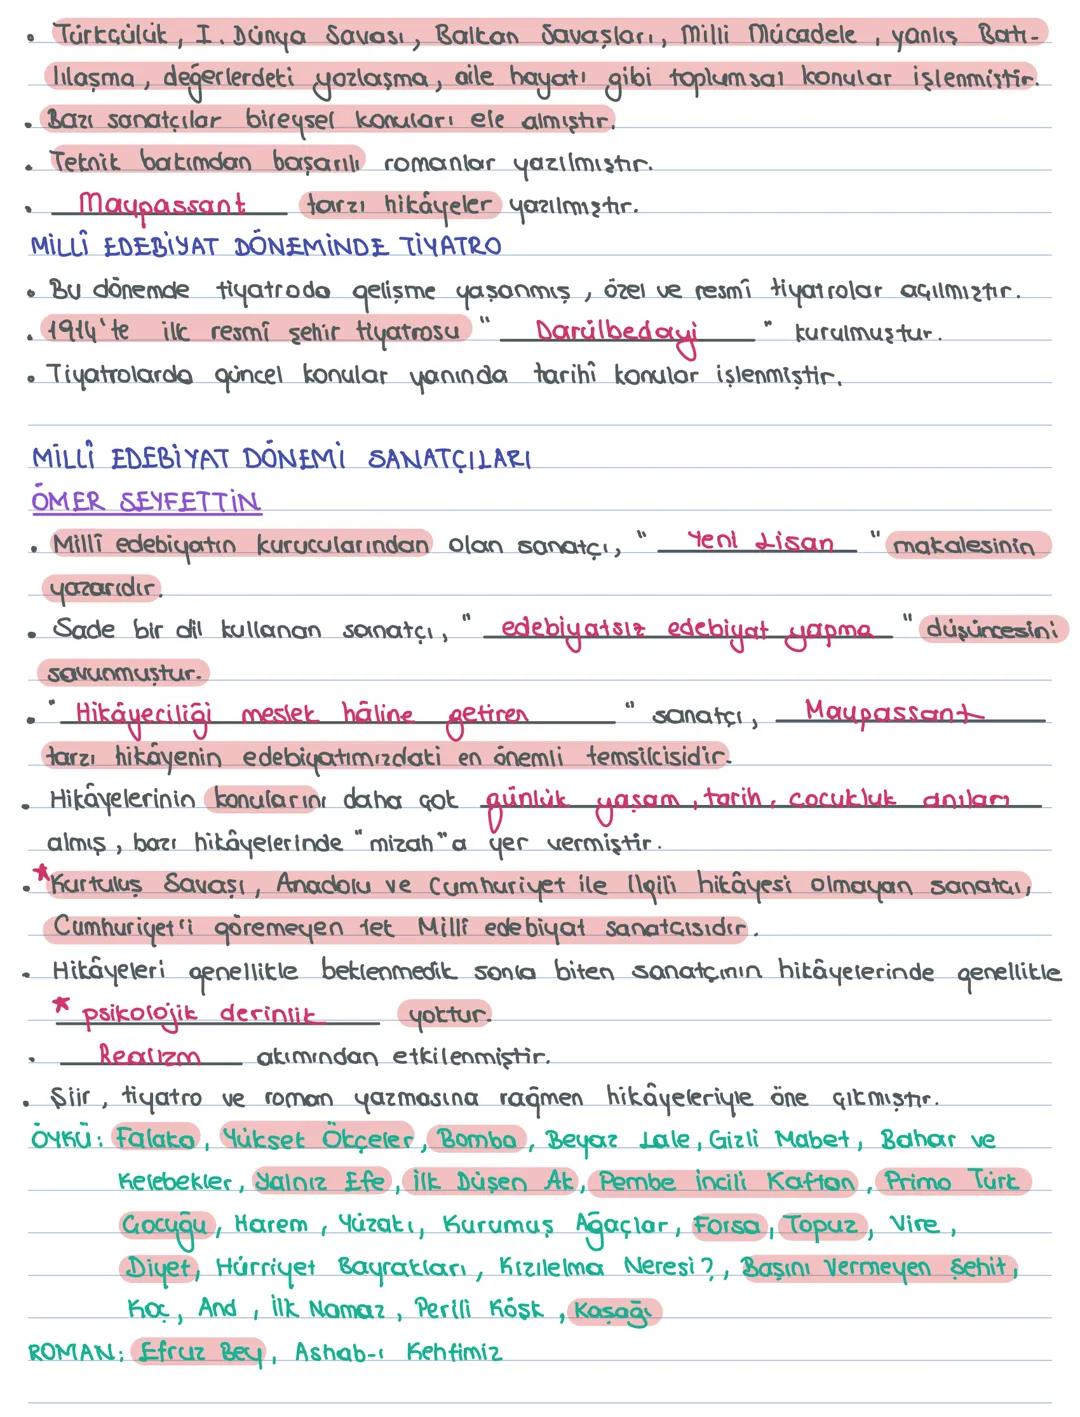 • Türkçülük, I. Dünya Savaşı, Balkan Savaşları, Milli Mücadele, yanlış Batı-
lılaşma, değerlerdeki yozlaşma, aile hayatı gibi toplumsal konular işlenmiştir.
• Bazı sanatçılar bireysel konuları ele almıştır.
• Teknik bakımdan başarılı romanlar yazılmıştır.
• Maupassant tarzı hikâyeler yazılmıştır.
MİLLÎ EDEBİYAT DÖNEMİNDE TİYATRO
• Bu dönemde tiyatroda gelişme yaşanmış, özel ve resmî tiyatrolar açılmıştır.
• 1914'te ilk resmî şehir tiyatrosu "Darülbedayi" kurulmuştur.
• Tiyatrolarda güncel konular yanında tarihî konular işlenmiştir.
MİLLÎ EDEBİYAT DÖNEMİ SANATÇILARI
ÖMER SEYFETTİN
• Millî edebiyatın kurucularından olan sanatçı, "Yeni Lisan" makalesinin
yazarıdır.
• Sade bir dil kullanan sanatçı, "edebiyatsız edebiyat yapma" düşüncesini
savunmuştur.
• "Hikâyeciliği meslek hâline getiren" sanatçı, Maupassant
tarzı hikâyenin edebiyatımızdaki en önemli temsilcisidir.
• Hikâyelerinin konularını daha çok günlük yaşam, tarih, çocukluk anıları
almış, bazı hikâyelerinde "mizah"a yer vermiştir.
• *Kurtuluş Savaşı, Anadolu ve Cumhuriyet ile ilgili hikâyesi olmayan sanatçı,
Cumhuriyet'i göremeyen tek Millî edebiyat sanatçısıdır.
• Hikâyeleri genellikle beklenmedik sonla biten sanatçının hikâyelerinde genellikle
* psikolojik derinlik yoktur.
• Realizm akımından etkilenmiştir.
• Şiir, tiyatro ve roman yazmasına rağmen hikâyeleriyle öne çıkmıştır.
ÖYKÜ: Falaka, Yüksek Ökçeler, Bomba, Beyaz Lale, Gizli Mabet, Bahar ve
Kelebekler, Yalnız Efe, İlk Düşen Ak, Pembe İncili Kaftan, Primo Türk
Çocuğu, Harem, Yüzakı, Kurumuş Ağaçlar, Forsa, Topuz, Vire,
Diyet, Hürriyet Bayrakları, Kızılelma Neresi?, Başını Vermeyen Şehit,
Koç, And, İlk Namaz, Perili Köşk, Kaşağı
ROMAN: Efruz Bey, Ashab-ı Kehfimiz